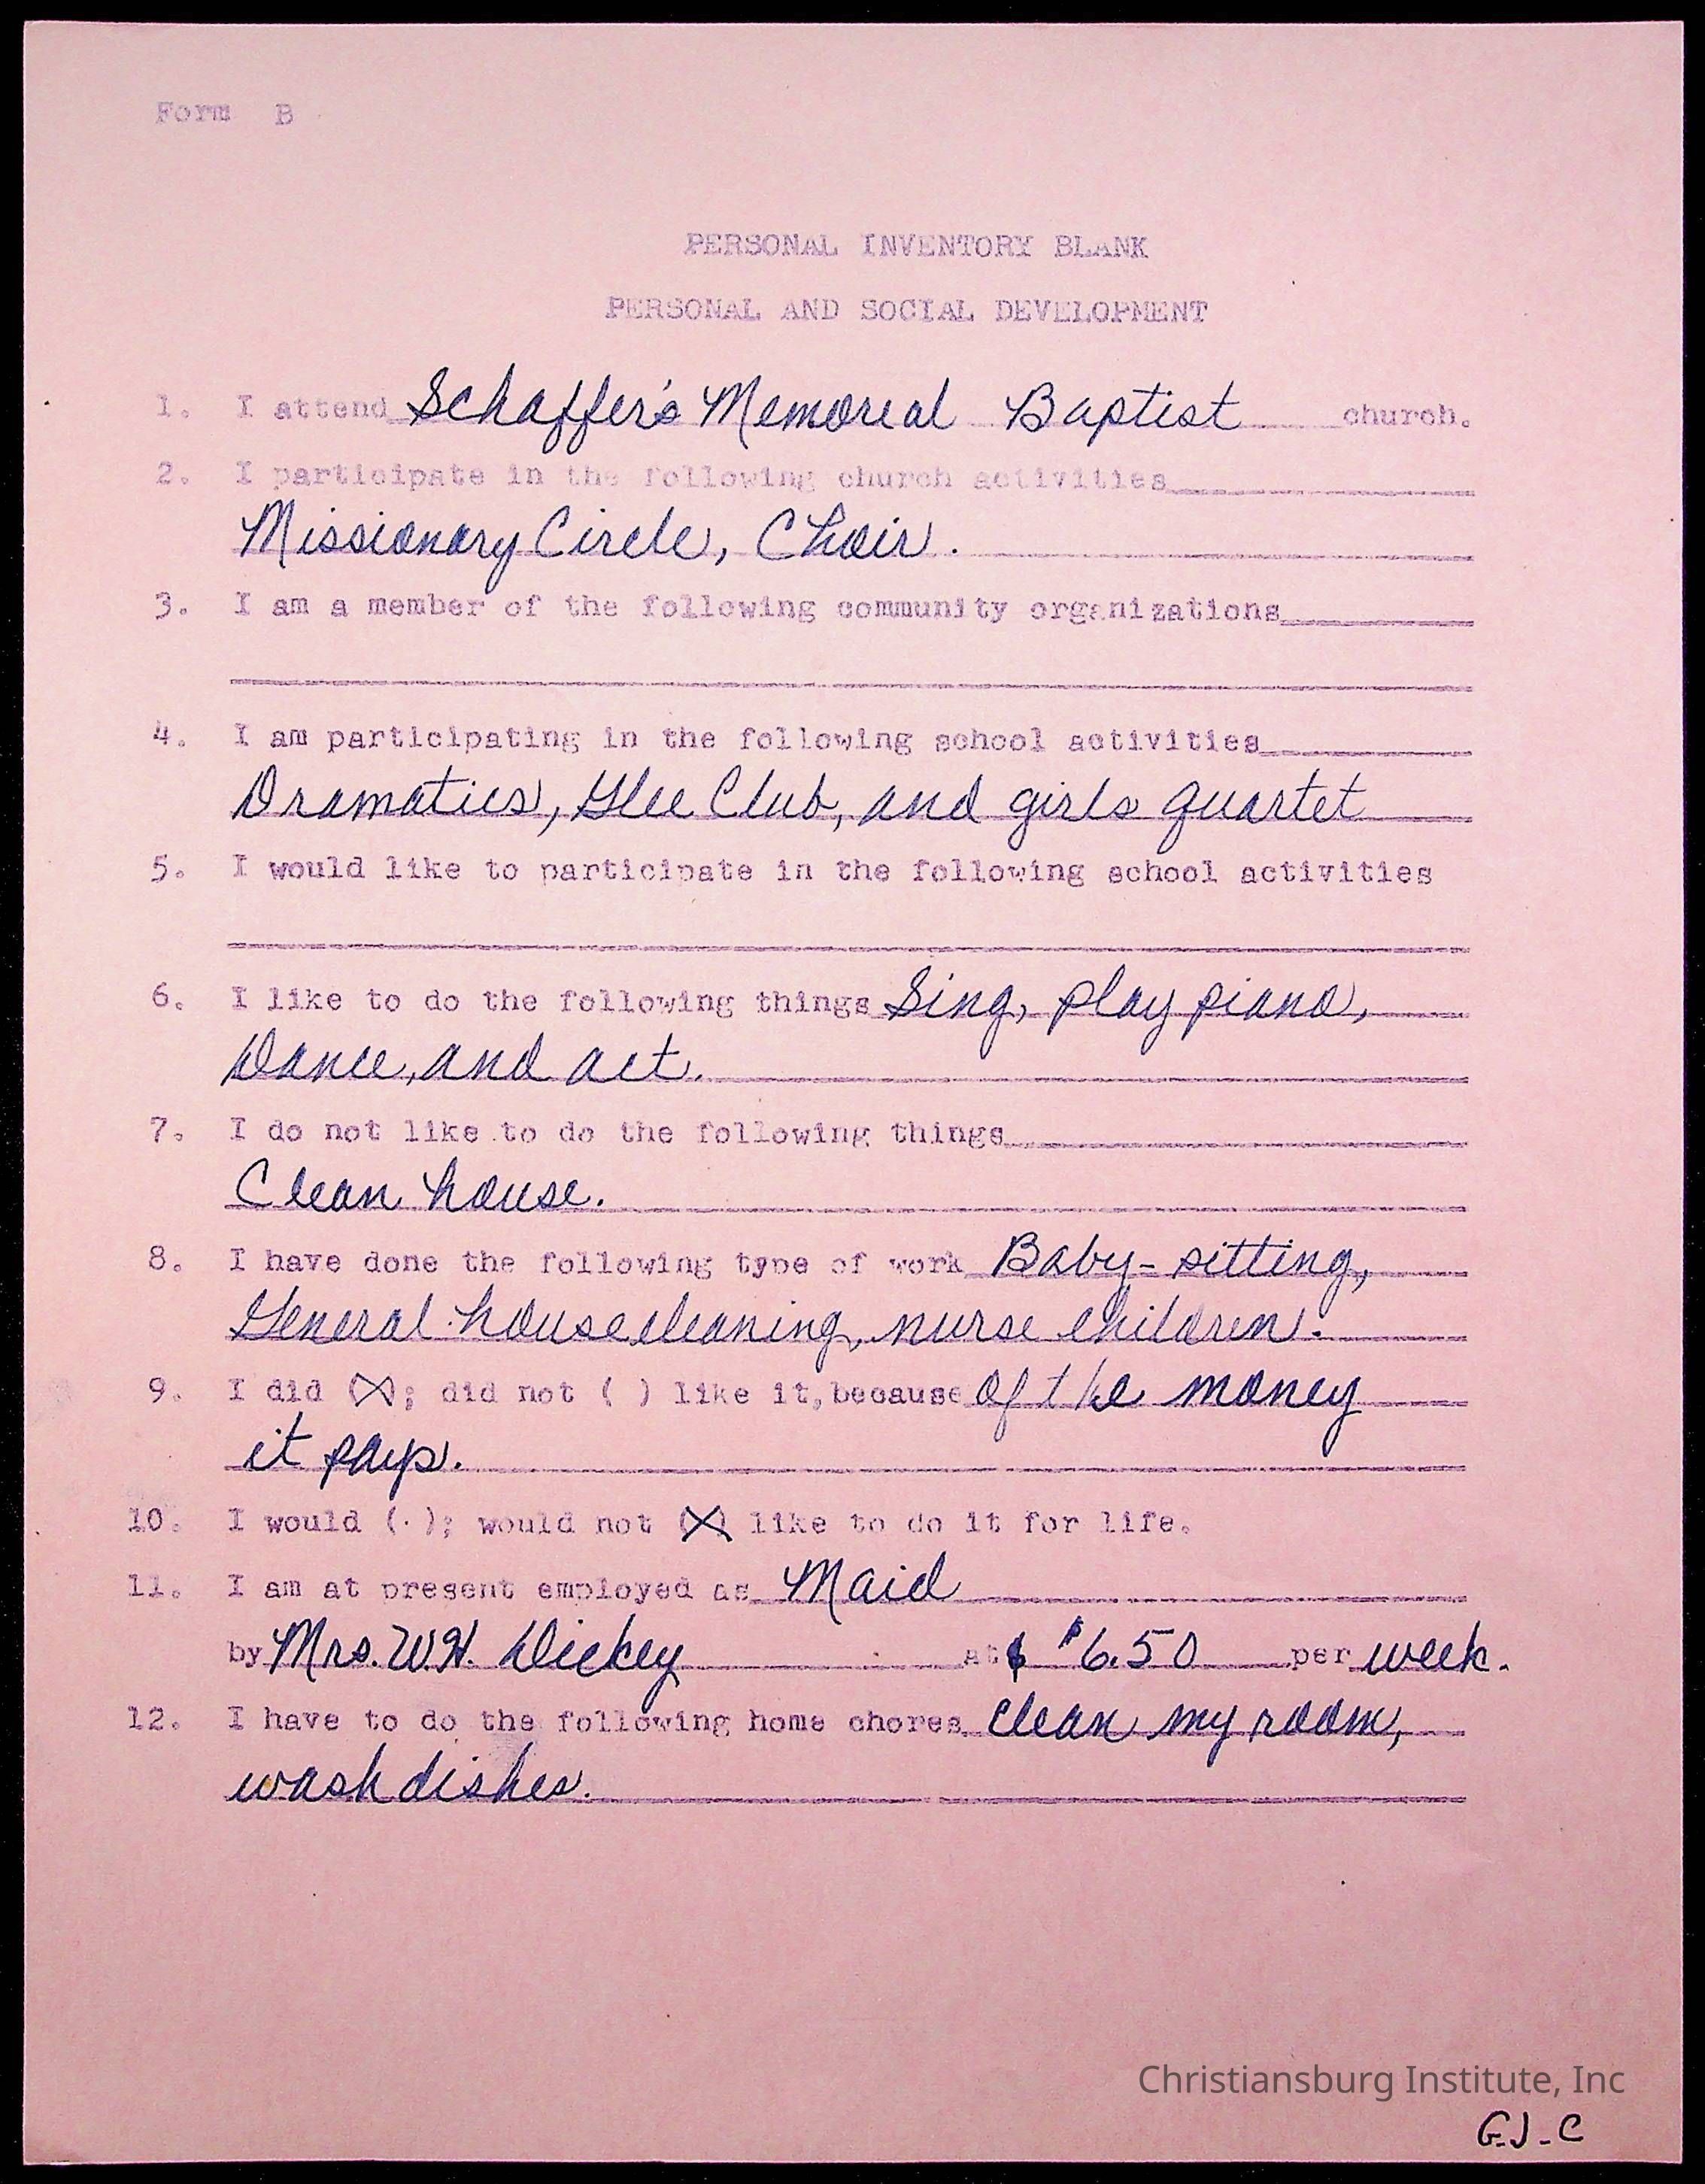 Form B
PERSONAL INVENTORY BLANK
PERSONAL AND SOCIAL DEVELOPMENT
1. I attend Schaffer's Memoreal Baptist church.
2. I participate in the following church activities
Missionary Circle, Choir.
3. I am a member of the following community organizations
4. I am participating in the following school activities
Dramatics, Glee Club, and girls quartet
5. I would like to participate in the following school activities
6. I like to do the following things Sing, play piano,
Dance, and act.
7. I do not like to do the following things
Clean house.
8. I have done the following type of work Baby-sitting,
General housecleaning, nurse children.
9. I did (X); did not ( ) like it, because of the money
it pays.
10. I would ( ); would not (X) like to do it for life.
11. I am at present employed as Maid
by Mrs. W.H. Dickey at $ $6.50 per week.
12. I have to do the following home chores clean my room,
wash dishes.
Christiansburg Institute, Inc
G.J.C